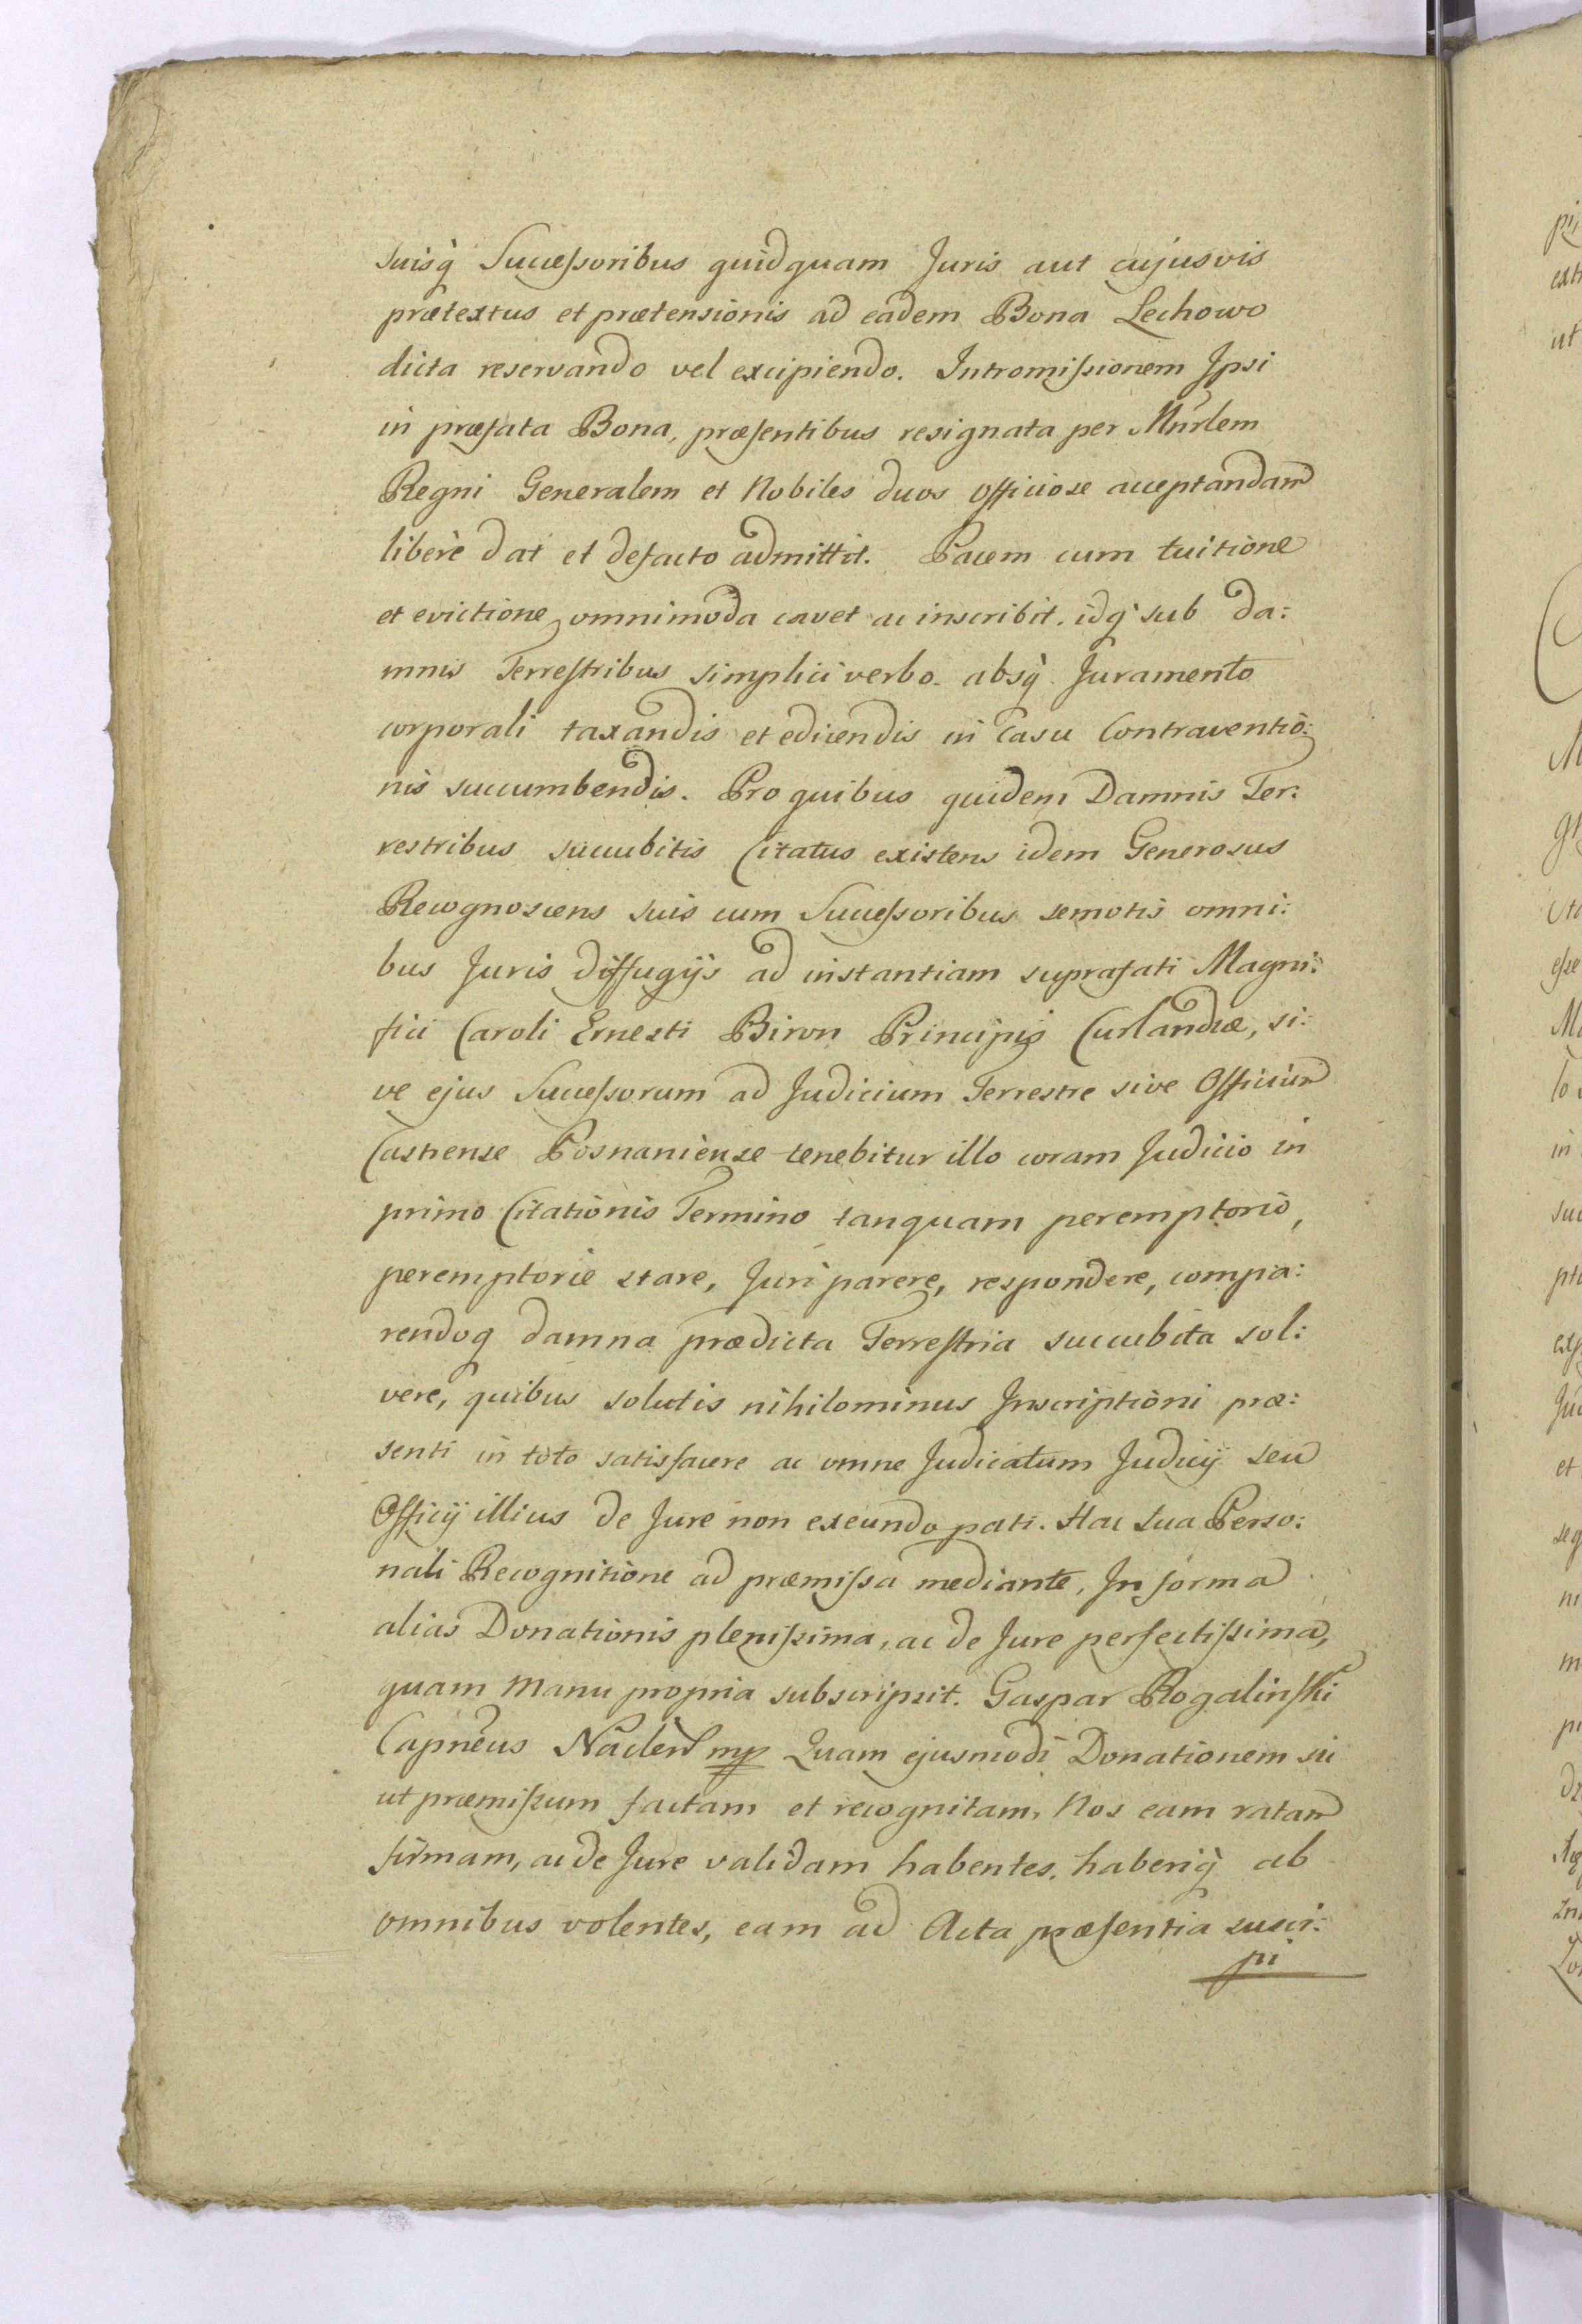 suisq̀ Succeſsoribus quidquam Juris aut cujusvis
prætextus et prætensionis ad eadem Bona Lechowo
dicta reservando vel excipiendo. Intromiſsionem Ipsi
in præfata Bona, præſentibus resignata per Mnrlem
Regni Generalem et Nobiles duos officiose acceptandam
liberè dat et defacto admittit. Pacem cum tuitione
et evictione omnimoda cavet ac inscribit. idq̀ sub da:
mnis Terreſtribus simplici verbo absq̀ Juramento
corporali taxandis et edicendis in Casu Contraventio:
nis succumbendis. Pro quibus quidem Damnis Ter:
restribus succubitis Citatus existens idem Generosus
Recognoscens suis cum Succeſsoribus semotis omni:
bus Juris diffugijs ad instantiam suprafati Magni:
fici Caroli Ernesti Biron Principis Curlandiæ, si:
ve ejus Succeſsorum ad Judicium Terrestre sive Officium
Castrense Posnaniense tenebitur illo coram Judicio in
primo Citationis Termino tanquam peremptorio,
peremptorie stare, Juri parere, respondere, compa:
rendoq damna prædicta Terreſtria succubita sol:
vere, quibus solutis nihilominus Inscriptioni præ:
senti in toto satisfacere ac omne Judicatum Judicij seu
Officij illius de Jure non exeundo pati. Hac sua Perso:
nali Recognitione ad præmiſsa mediante, In forma
alias Donationis pleniſsima, ac de Jure perfectiſsima,
quam Manu propria subscripsit. Gaspar Rogalinſki
Capneus Naclen mp Quam ejusmodi Donationem sic
ut præmiſsum factam et recognitam, Nos eam ratam
firmam, ac de Jure validam habentes, haberiq̀ ab
omnibus volentes, eam ad Acta præſentia susci:
pi